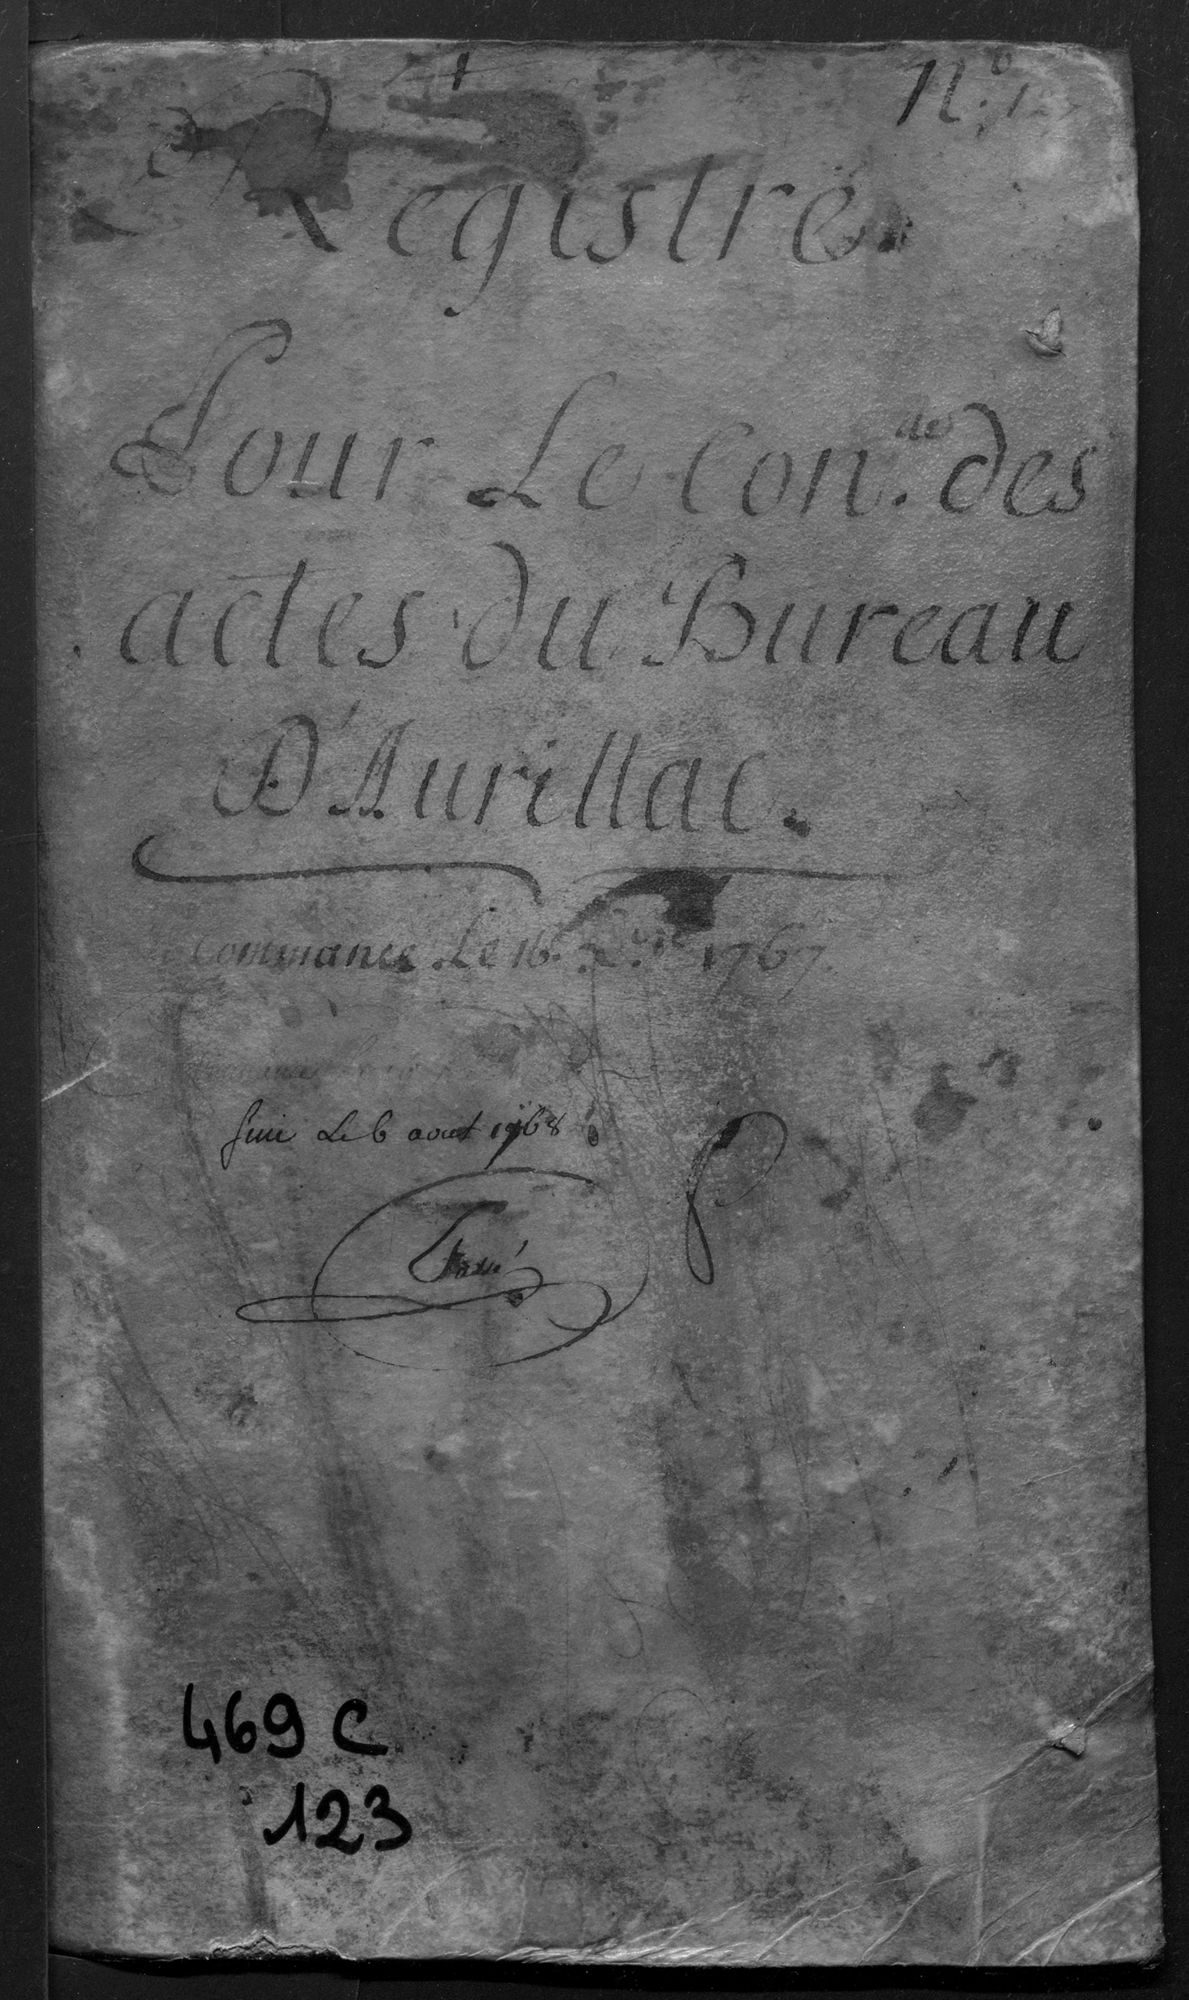 N.º
Registre
Pour Le Con.de des
actes du Bureau
D'Aurillac.
Commance Le 16. 1767.
finie Le 6 aout 1768
469 C
123